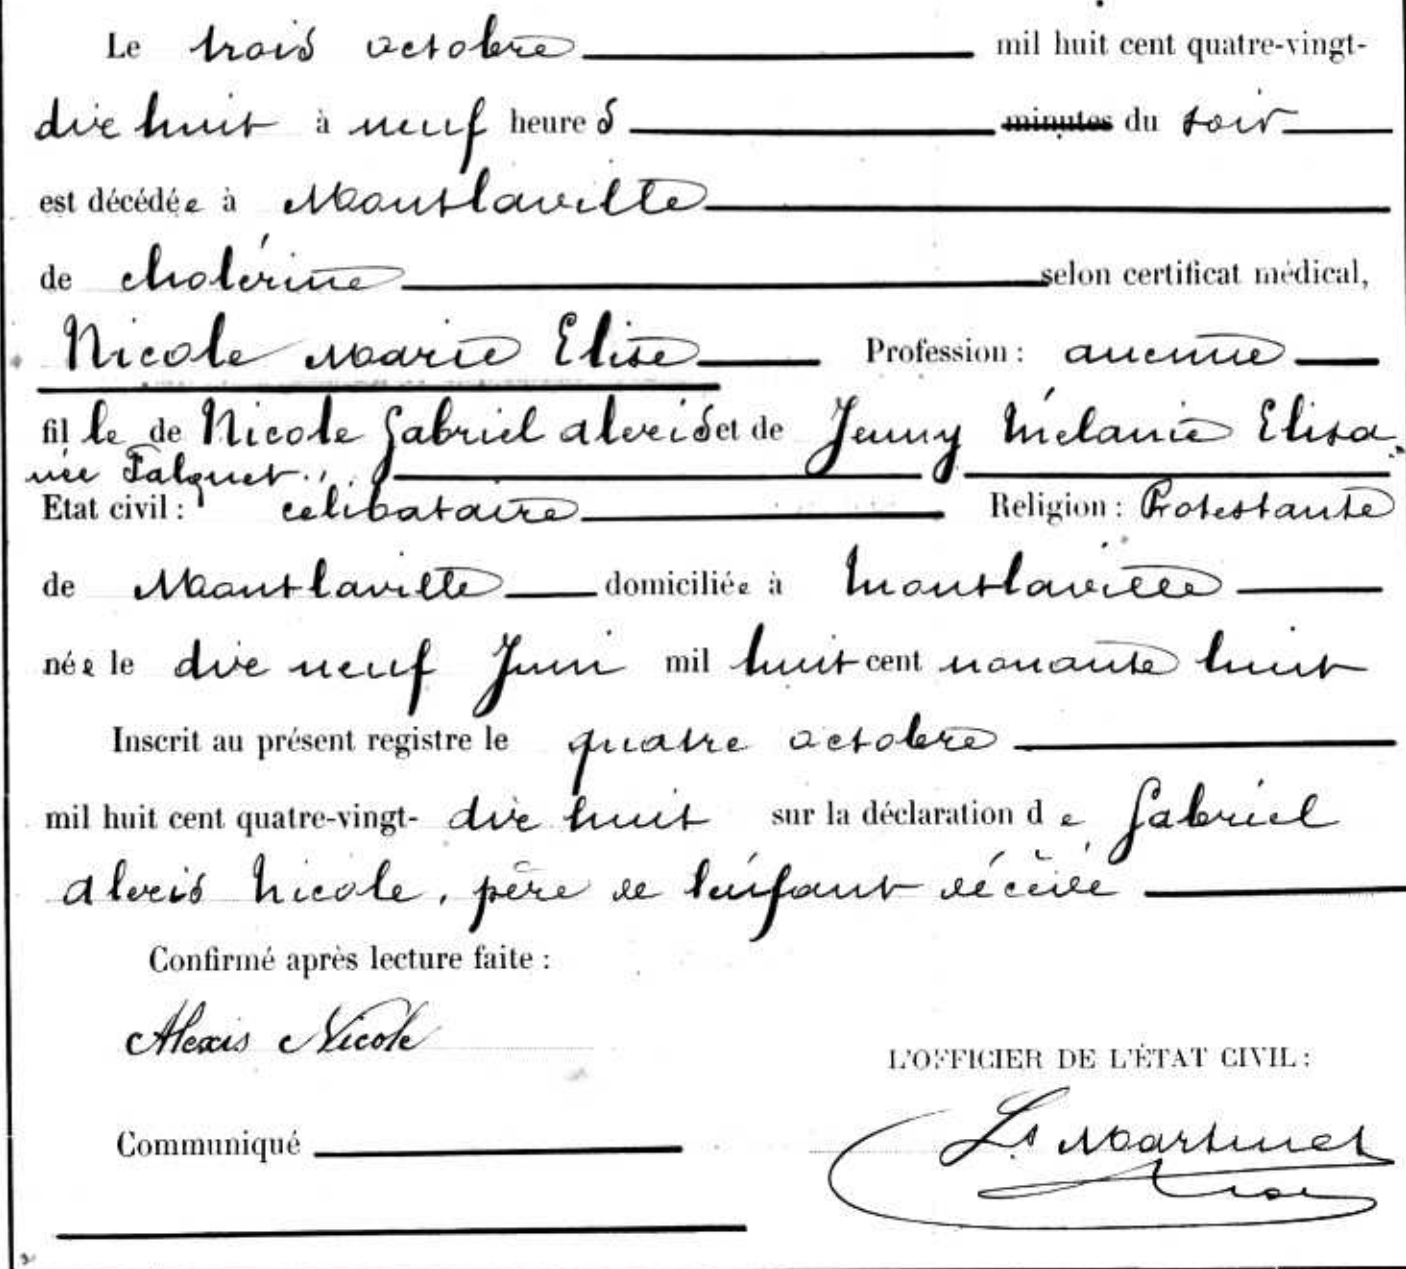 Le trois octobre mil huit cent quatre-vingt-
dix huit à neuf heures minutes du soir
est décédée à Montlaville
de cholérine selon certificat médical,
Nicole Marie Elise Profession : aucune
fille de Nicole Gabriel Alexis et de Jenny Mélanie Elisa
née Falquet
Etat civil : célibataire Religion : Protestante
de Montlaville domiciliée à Montlaville
née le dix neuf Juin mil huit cent nonante huit
Inscrit au présent registre le quatre octobre
mil huit cent quatre-vingt- dix huit sur la déclaration de Gabriel
Alexis Nicole, père de l'enfant décédé
Confirmé après lecture faite :
Alexis Nicole
L'OFFICIER DE L'ÉTAT CIVIL :
Communiqué
Ls Martinet